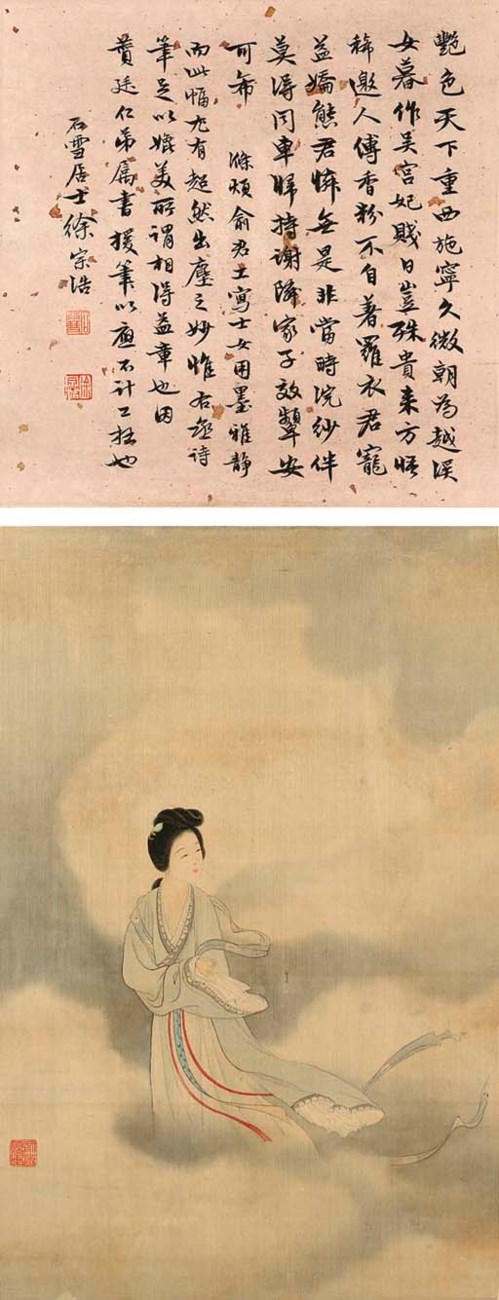 艷色天下重西施寧久微朝為越溪
女暮作吳宮妃賤日豈殊貴来方悟
稀邀人傅香粉不自著羅衣君寵
益嬌態君憐無是非當時浣紗伴
莫得同車歸持謝隣家子效顰安
可希 滌煩俞君工寫士女用墨雅静
而此幅尤有超然出塵之妙惟右丞詩
筆足以媲美所謂相得益章也因
廷仁弟屬書援筆以應不計工拙也
石雪居士徐宗浩